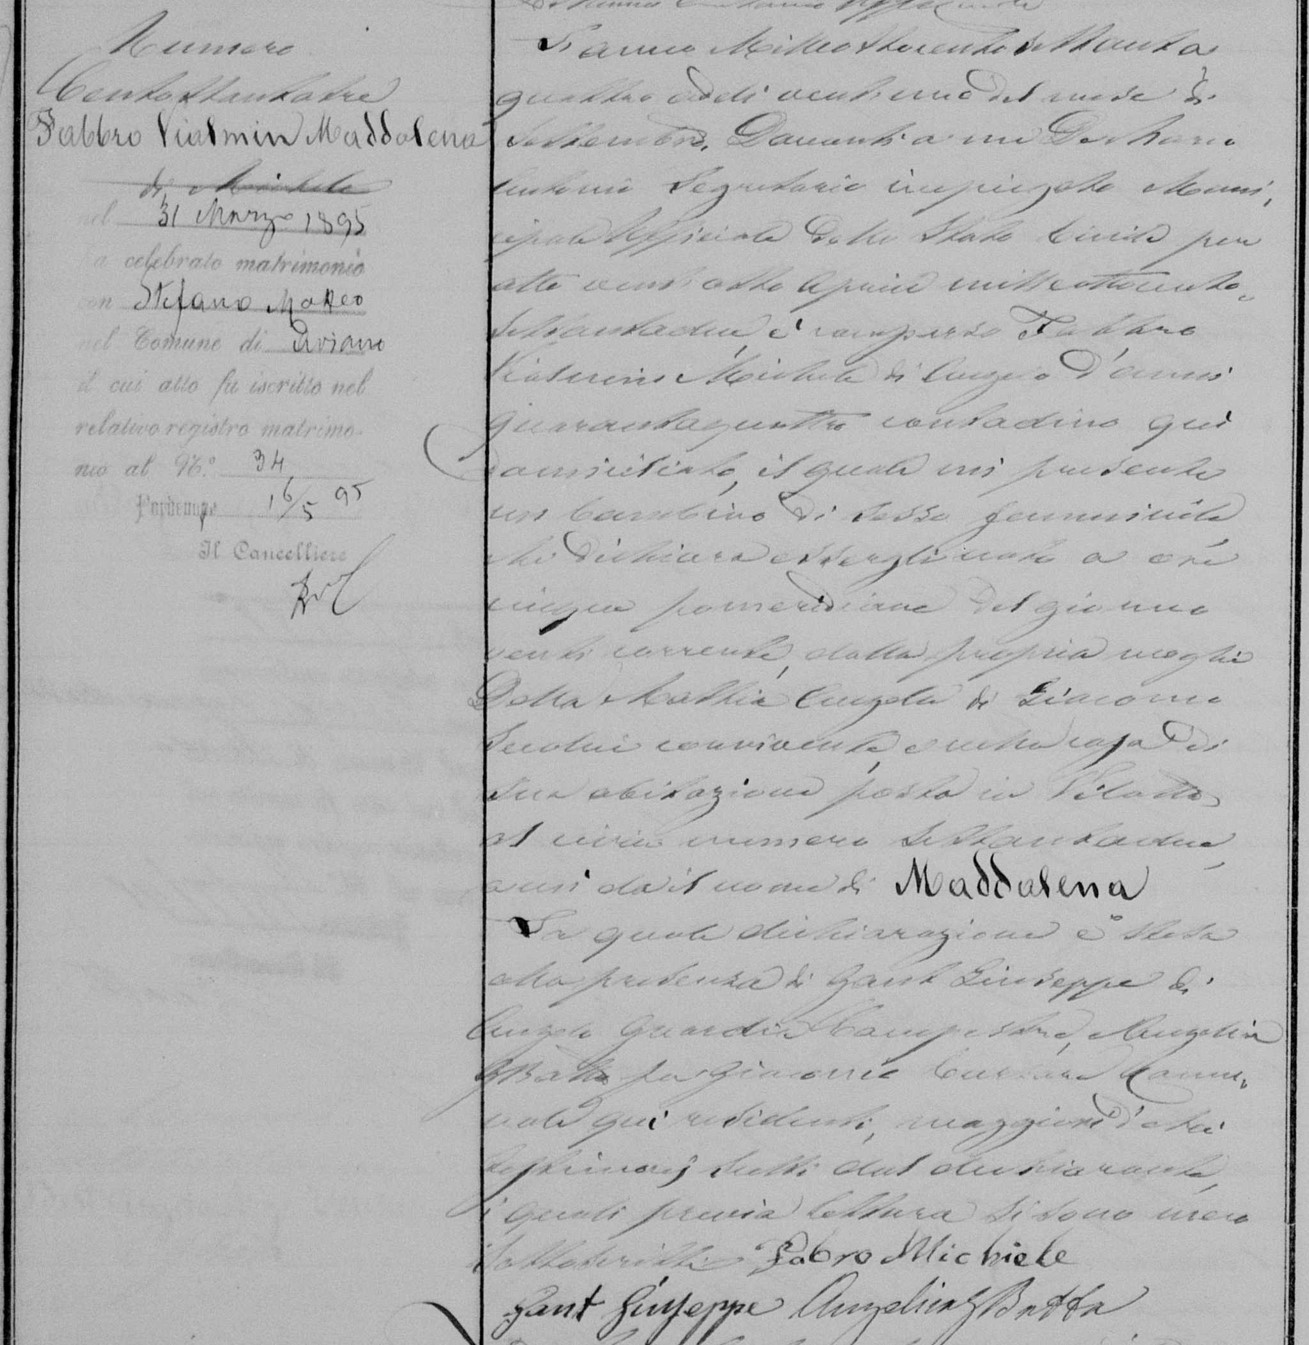 Numero
Centottantatre
Fabbro Vialmin Maddalena
di Michele
nel 31 Marzo 1895
a celebrato matrimonio
con Stefano Matteo
nel Comune di Aviano
il cui atto fu iscritto nel
relativo registro matrimo-
nio al N.º 34
Pordenone 16/5 95
Il Cancelliere
L'anno Milleottocento settanta
quattro addi ventiuno del mese di
Settembre. Davanti a me De
Antonio Segretario impiegato Muni,
cipale Ufficiale dello Stato Civile per
atto ventiotto Aprile milleottocento-
settantadue, è comparso Fabbro
Michele di Angelo d'anni
quarantaquattro contadino qui
domiciliato, il quale mi presenta
un bambino di sesso femminile
che dichiara essergli nato a ore
cinque pomeridiane del giorno
venti corrente, dalla propria moglie
Della Mattia Angela di Giacomo
Secolui convivente, e nella casa di
sua abitazione posta in
al civico numero settantadue,
a cui da il nome di Maddalena
La quale dichiarazione è stata
alla presenza di Gant Giuseppe di
Angelo Guardia Campestre, Angelin
GBatta fu Giacomo Cursore Comu-
nale qui residenti, maggiori d'età
testimonj scelti dal dichiarante,
i quali previa lettura si sono meco
sottoscritti Fabro Michiele
Gant Giuseppe Angelin GBatta